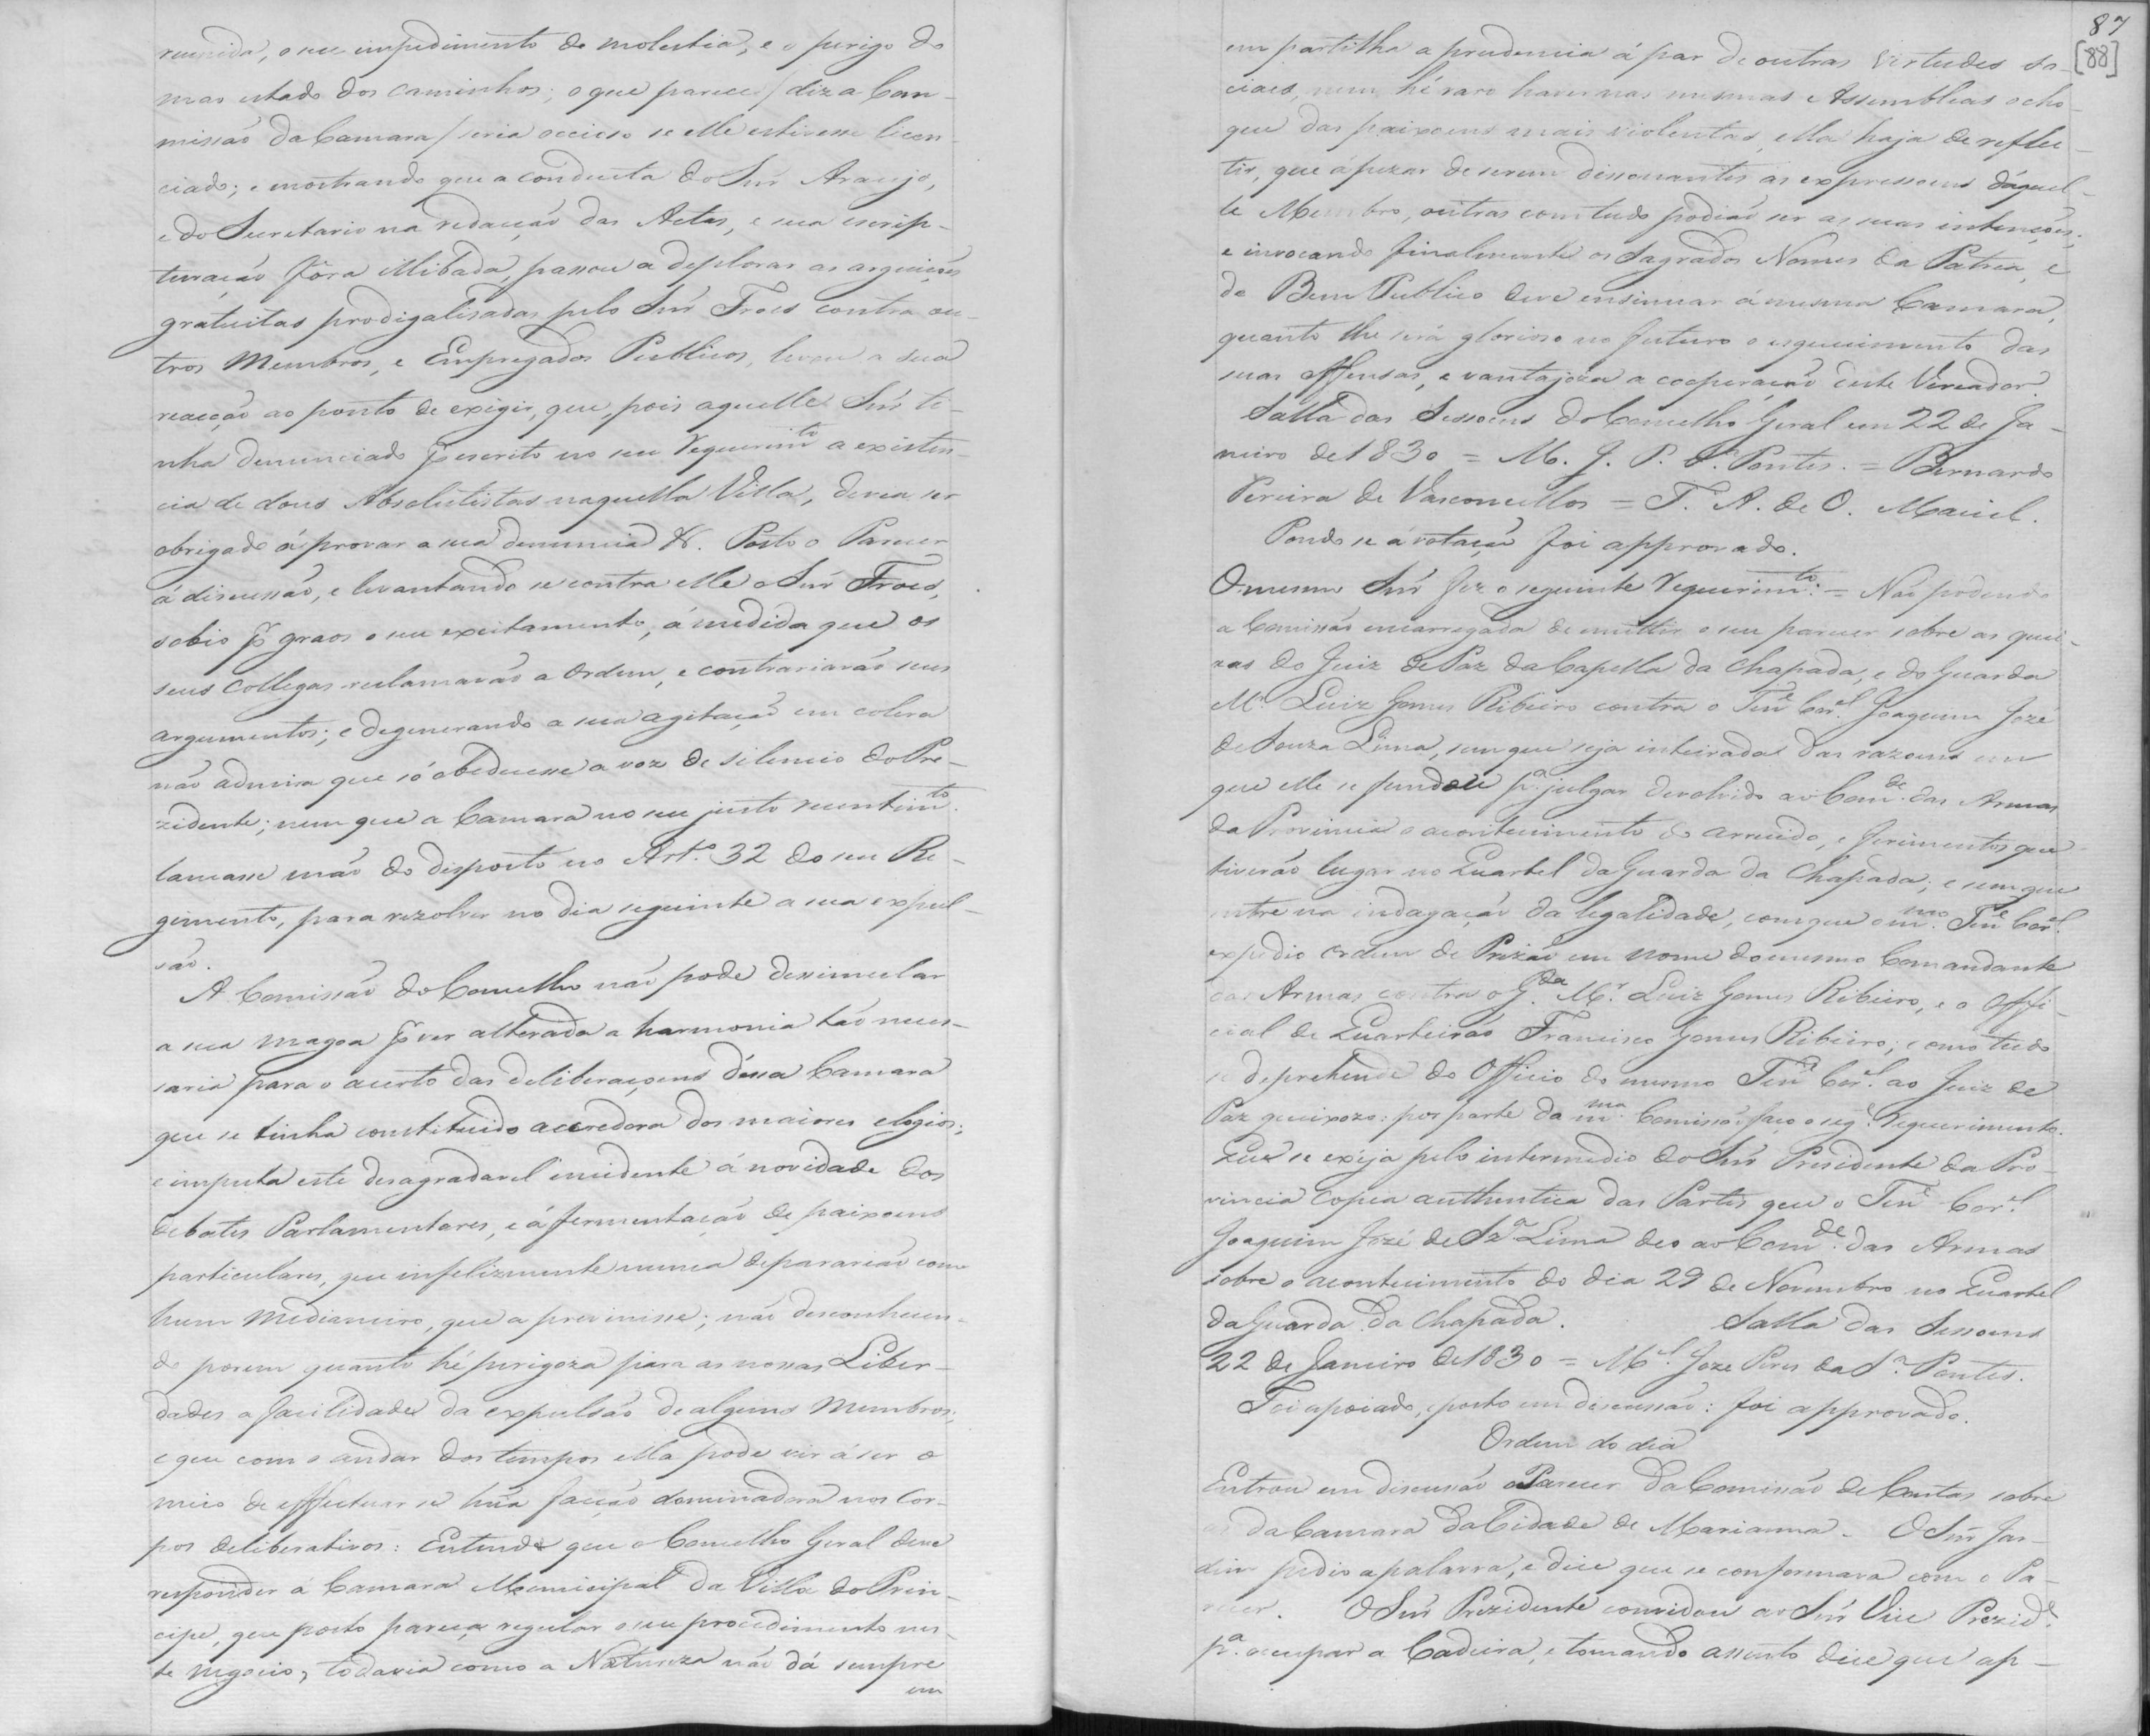 reunida, o seu impedimento de molestia, e o perigo do
mao estado dos caminhos; o que parece / diz a Com-
missão da Camara / seria occioso se elle estivesse licen-
ciado; e mostrando que a conducta do Snr Araujo,
e do Secretario na redacção das Actas, e sua escrip-
turação fôra illibada, passou a deplorar as arguiçoẽs
gratuitas prodigalisadas pelo Snr Froes contra ou-
tros Membros, e Empregados Publicos, levou a sua
reacção ao ponto de exigir, que, pois aquelle Snr ti-
nha denunciado p̃ escrito no seu requerim.to a existen-
cia de dous Absolutistas naquella Villa, devia ser
obrigado á provar a sua denuncia &. Posto o Parecer
á discussão, e levantando se contra elle o Snr Froes,
sobio p̃ graos o seu exaltamento, á medida que os
seus collegas reclamavão a Ordem, e contrariavão seus
argumentos; e degenerando a sua agitação em colera
não admira que só obedecesse a voz de silencio do Pre-
zidente; nem que a Camara no seu justo resentim.to
lançasse mão do disposto no Art.º 32 do seu Re-
gimento, para rezolver no dia seguinte a sua expul-
são.
A Comissão do Conselho não pode dessimular
a sua magoa p̃ ver alterada a harmonia tão neces-
saria para o acerto das deliberaçoens dessa Camara
que se tinha constituido accredora dos maiores elogios;
e imputa este desagradavel incidente á novidade dos
debates Parlamentares, e á fermentação de paixoens
particulares, que infelizmente nunca deparárião com
hum medianeiro, que a prevenisse; não desconhecen-
do porem quanto hé perigoza para as nossas Liber-
dades a facilidade da expulsão de alguns Membros;
e que com o andar dos tempos ella pode vir á ser o
meio de effectuar se huã facção dominadora nos Cor-
pos deliberativos: Entende que o Conselho Geral deve
responder á Camara Municipal da Villa do Prin-
cipe, que posto pareça regular o seu procedimento nes-
te negocio, todavia como a Natureza não dá sempre
em
87
[88]
em partilha a prudencia á par de outras virtudes so-
ciaes, nem hé raro haver nas mesmas Assembleas o cho-
que das paixoens mais violentas, ella haja de reflec-
tir, que ápezar de serem dissonantes as expressoens dáquel-
le Membro, outras comtudo podião ser as suas intençoẽs;
e invocando finalmente os Sagrados Nomes da Patria, e
do Bem Publico deve ensinuar á mesma Camara,
quanto lhe será glorioso no futuro o esquecimento das
suas offensas, e vantajoza a cooperação deste Vereador.
Salla das Sessoens do Conselho Geral em 22 de Ja-
neiro de 1830 = M. J. P. S.ª Pontes. = Bernardo
Pereira de Vasconcellos = T. A. de O. Maciel.
Pondo se á votação foi approvado.
O mesmo Snr fez o seguinte requerim.to: = Não podendo
a Comissão encarregada de emittir o seu parecer sobre as quei-
xas do Juiz de Paz da Capella da Chapada, e do Guarda
M.r Luiz Gomes Ribeiro contra o Ten.e Cor.el Joaquim Jozé
de Souza Lima, sem que seja inteirada das razoens em
que elle se fundou p.ª julgar devolvido ao Com.de das Armas
da Provincia o acontecimento do arruido, e ferimentos que
tiverão lugar no Quartel da Guarda da Chapada; e sem que
entre na indagação da legalidade, com que o m.mo Ten.e Cor.el
expedio ordem de Prizão em nome do mesmo Comandante
das Armas contra o G.da M.r Luiz Gomes Ribeiro, e o Offi-
cial de Quarteirão Francisco Gomes Ribeiro; como tudo
se deprehende do Officio do mesmo Ten.e Cor.el ao Juiz de
Paz queixozo: por parte da m.ma Comissão faço o seg.e requerimento.
Que se exija pelo intermedio do Snr Presidente da Pro-
vincia copia authentica das Partes que o Ten.e Cor.el
Joaquim Jozé de Sz.ª Lima deo ao Com.de das Armas
sobre o acontecimento do dia 29 de Novembro no Quartel
da Guarda da Chapada. Salla das Sessoens
22 de Janeiro de 1830 = M.el Joze Pires da S.ª Pontes.
Foi apoiado, e posto em discussão: foi approvado.
Ordem do dia
Entrou em discussão o Parecer da Comissão de Contas sobre
as da Camara da Cidade de Marianna. O Snr Jar-
dim pedio a palavra, e dice que se conformava com o Pa-
recer. O Snr Prezidente convidou ao Snr Vice Prezid.e
p.ª occupar a Cadeira, e tomando assento dice que ap-